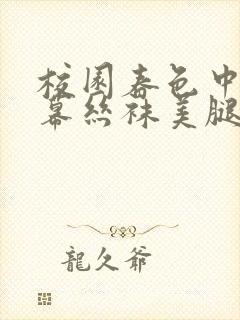 校園春色中
幕絲袜美腿
龍久爺